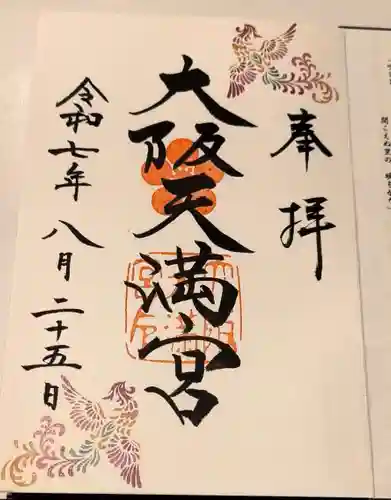 奉拝
大阪天満宮
令和七年八月二十五日